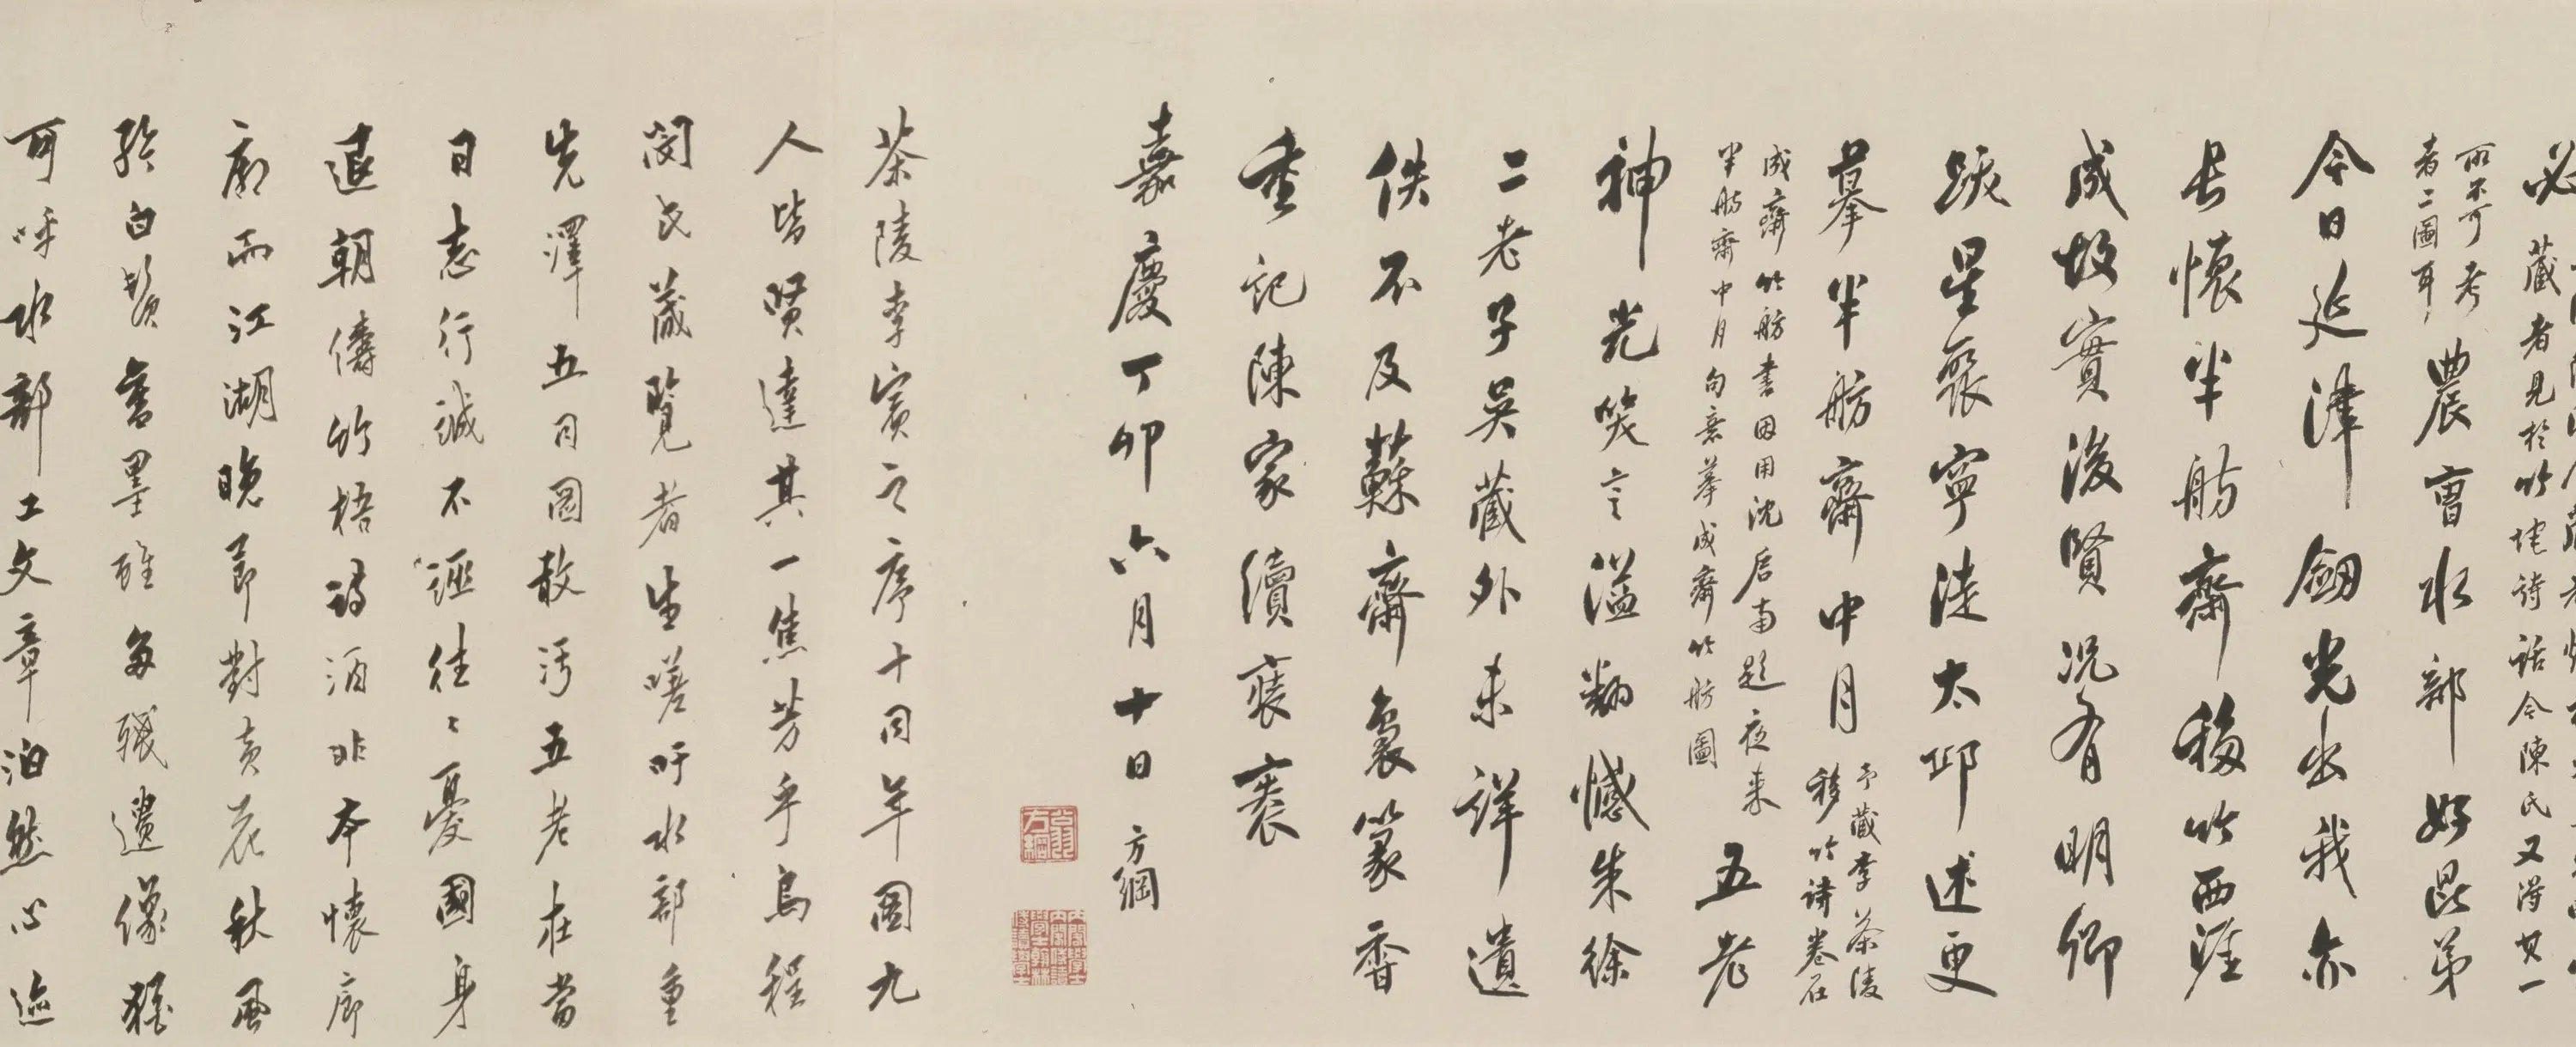 必藏者見於竹垞詩話今陳氏又得其一
所不可考
者二圖耳
農曹水部好昆弟
今日延津劒光出我亦
長懷半舫齋移竹西涯
成故實後賢況有明卿
跋星聚寧徒太邱述更
摹半舫齋中月
予藏李茶陵
移竹詩卷在
成齋竹舫書因用沈启南題夜来
半舫齋中月句意摹成齋竹舫圖
五老
神光笑言溢翻憾朱徐
二老子吳藏外未詳遺
佚不及蘇齋裊篆香
重記陳家續裝褒
嘉慶丁卯六月十日 方綱
茶陵李賓之序十同年圖九
人皆賢達其一焦芳乎烏程
閔氏藏覽者生嗟吁水部重
先澤五同圖敢污五老在當
日志行誠不誣往往憂國身
退朝儔竹梧詩酒非本懷廊
廟而江湖晚節對黃花秋風
矜白鬚舊墨雖多殘遺像猶
可呼水部工文章泊然心迹